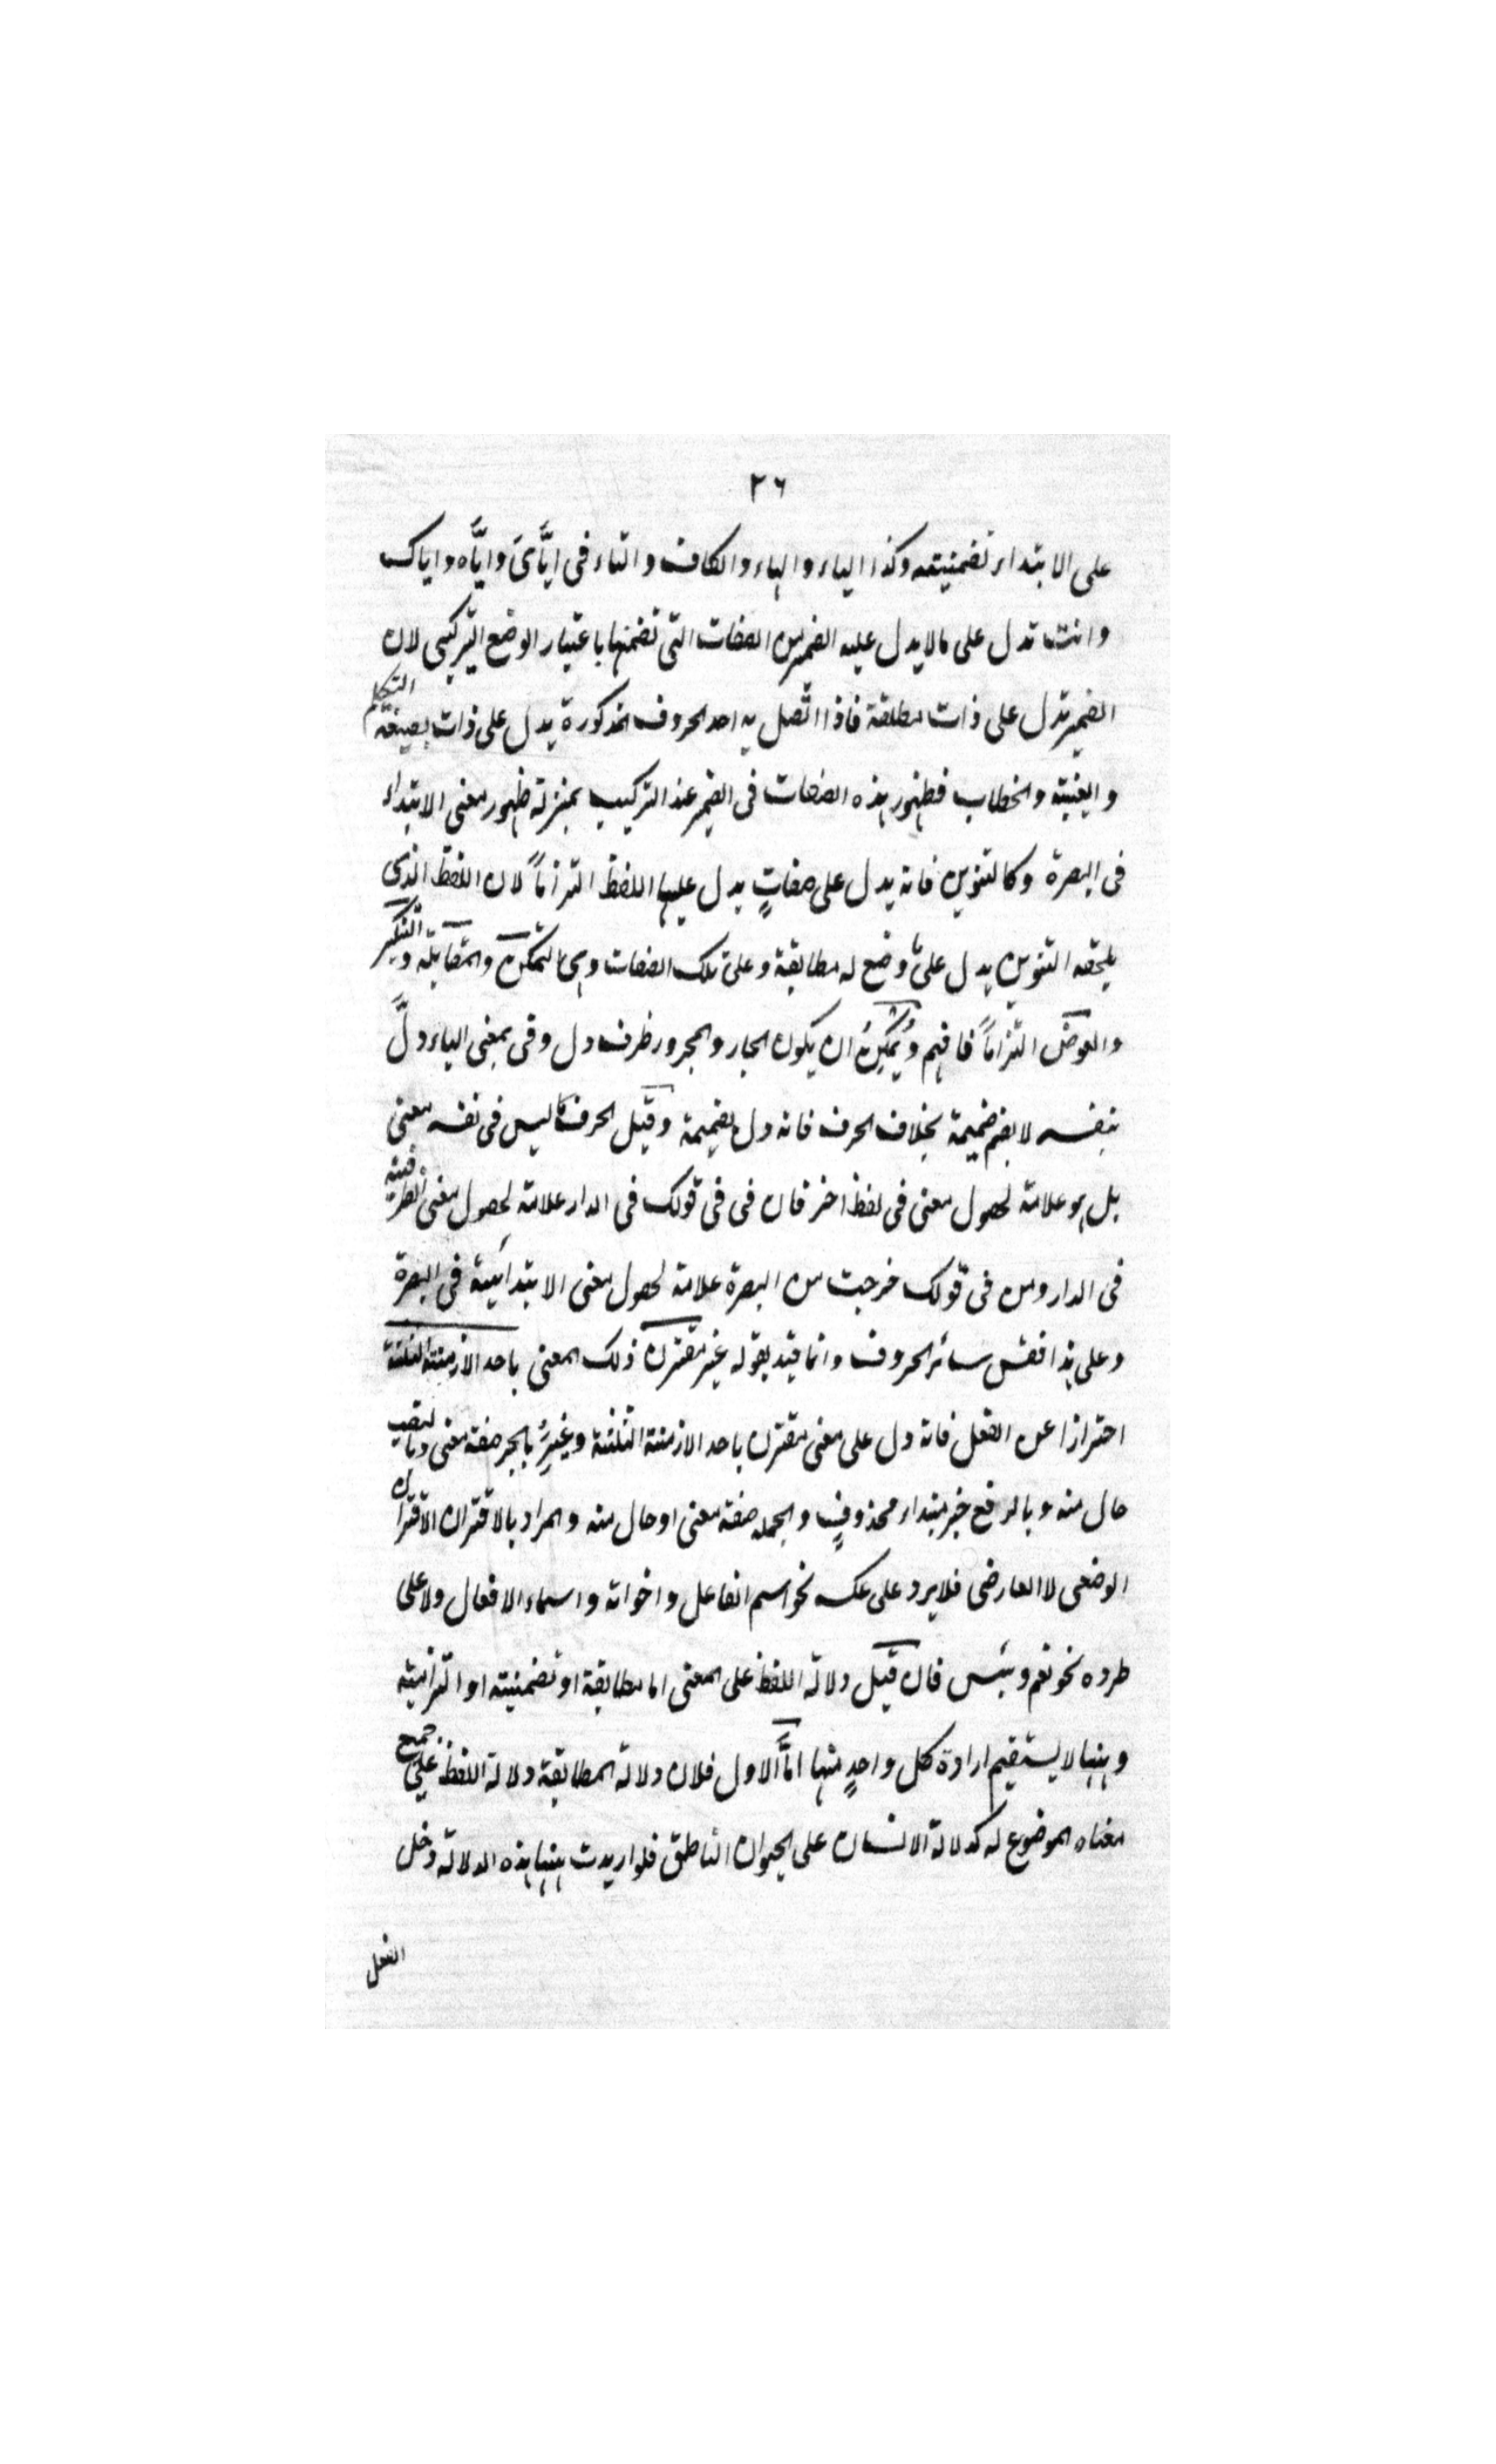 ٢٦
على الابتداء تضمنيته وكذا الياء والهاء والكاف والتاء فى ايَّاىَ وايَّاه واياك
وانت تدل على مالا يدل عليه الضمير من الصفات التى تضمنها باعتبار الوضع التركيبى لان
الضمير تدل على ذات مطلقة فاذا اتصل به احد الحروف المذكورة يدل على ذات بصيغة التكلم
والغيبة والخطاب فظهور هذه الصفات فى الضمير عند التركيب بمنزلة ظهور معنى الابتداء
فى البصرة وكالتنوين فانه يدل على صفاتٍ يدل عليها اللفظ التزاماً لان اللفظ الذى
يلحقه التنوين يدل على ما وضع له مطابقة وعلى تلك الصفات وهى التمكن والمقابلة والتنكير
والعوض التزاماً فافهم ويُمكِنُ ان يكون الجار والمجرور ظرف دل وفى بمعنى الباء دلَّ
بنفسه لا بضم ضميمة بخلاف الحرف فانه دل بضميمة وقيل الحرف ما ليس فى نفسه معنى
بل هو علامة لحصول معنى فى لفظ اخر فان فى فى قولك فى الدار علامة لحصول معنى الظرفية
فى الدار ومن فى قولك خرجت من البصرة علامة لحصول معنى الابتدائية فى البصرة
وعلى هذا فقس سائر الحروف وانما قيد بقوله غير مقترن ذلك المعنى باحد الازمنة الثلثة
احترازا عن الفعل فانه دل على معنى مقترن باحد الازمنة الثلثة وغيرُ بالجر صفة معنى وبالنصب
حال منه وبالرفع خبر مبتداء محذوفٍ والجملة صفة معنى او حال منه والمراد بالاقتران الاقتران
الوضعى لا العارضى فلا يرد على عكسه نحو اسم الفاعل واخواته واسماء الافعال ولا على
طرده نحو نعم وبئس فان قيل دلالة اللفظ على المعنى اما مطابقة او تضمنيته او التزاميته
وههنا لا يستقيم ارادة كل واحدٍ منها امَّا الاول فلان دلالة المطابقة دلالة اللفظ على جميع
معناه الموضوع له كدلالة الانسان على الحيوان الناطق فلو اريدت ههنا هذه الدلالة دخل
الفعل